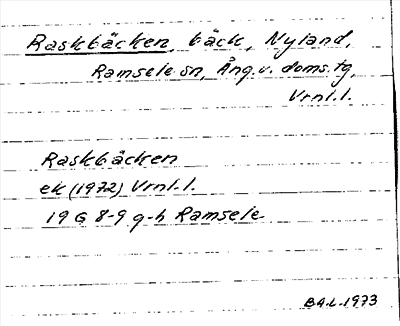 Raskbäcken, bäck, Nyland,
Ramsele sn, Ång.v. doms.tg,
Vrnl.l.
Raskbäcken
ek (1972) Vrnl.l.
19 G 8-9 g-h Ramsele
BäL 1973